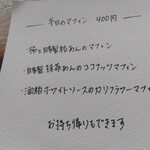 本日のマフィン 400円
・柿と自家製粒あんのマフィン
・自家製抹茶あんのココナッツマフィン
・酒粕ホワイトソースのカリフラワーマフィン
お持ち帰りもできます